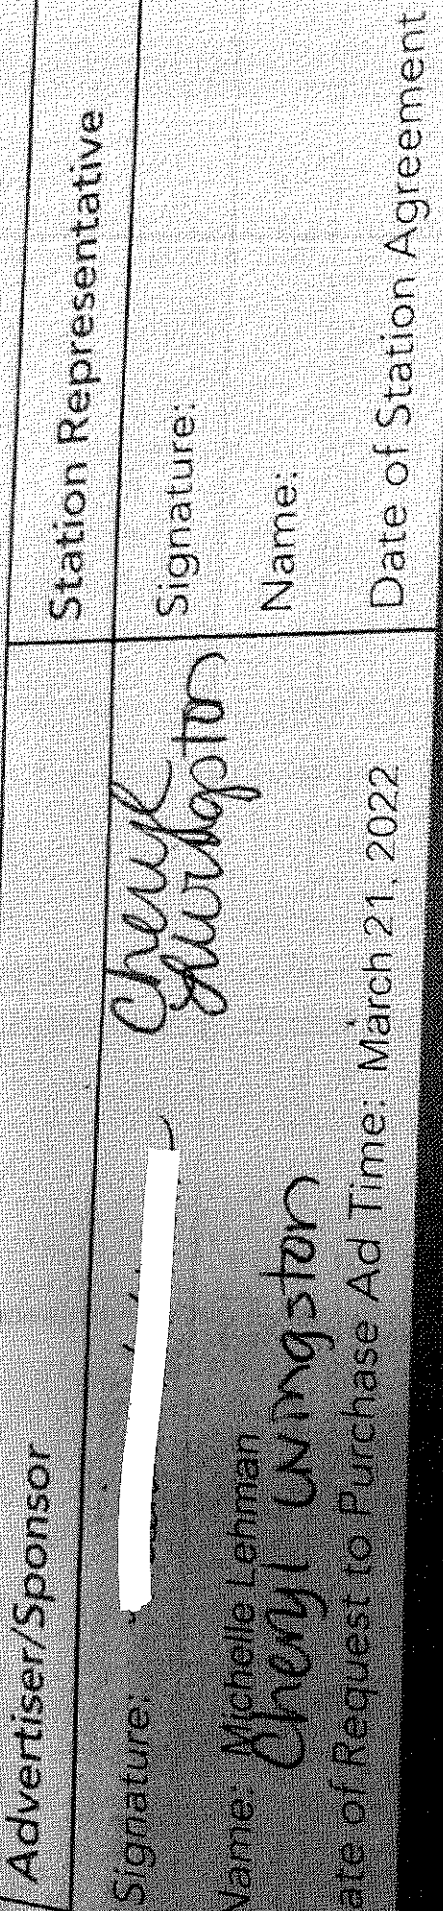 Advertiser/Sponsor
Signature:
Cheryl
Livingston
Name: Michelle Lehman
Cheryl Livingston
ate of Request to Purchase Ad Time: March 21, 2022
Station Representative
Signature:
Name:
Date of Station Agreement